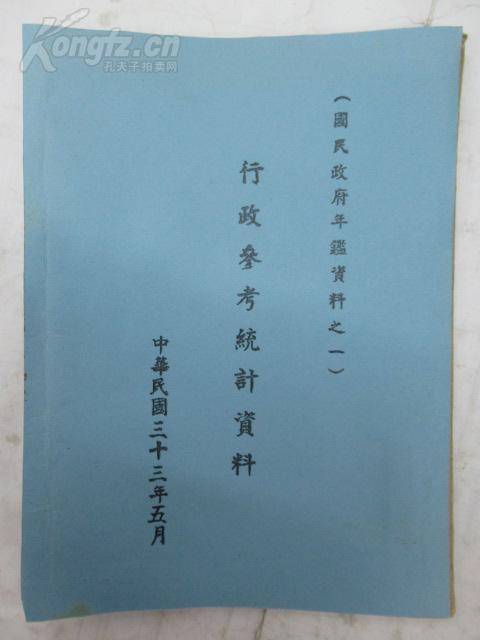 Kongfz.cn
孔夫子拍卖网
（國民政府年鑑資料之一）
行政參考統計資料
中華民國三十三年五月